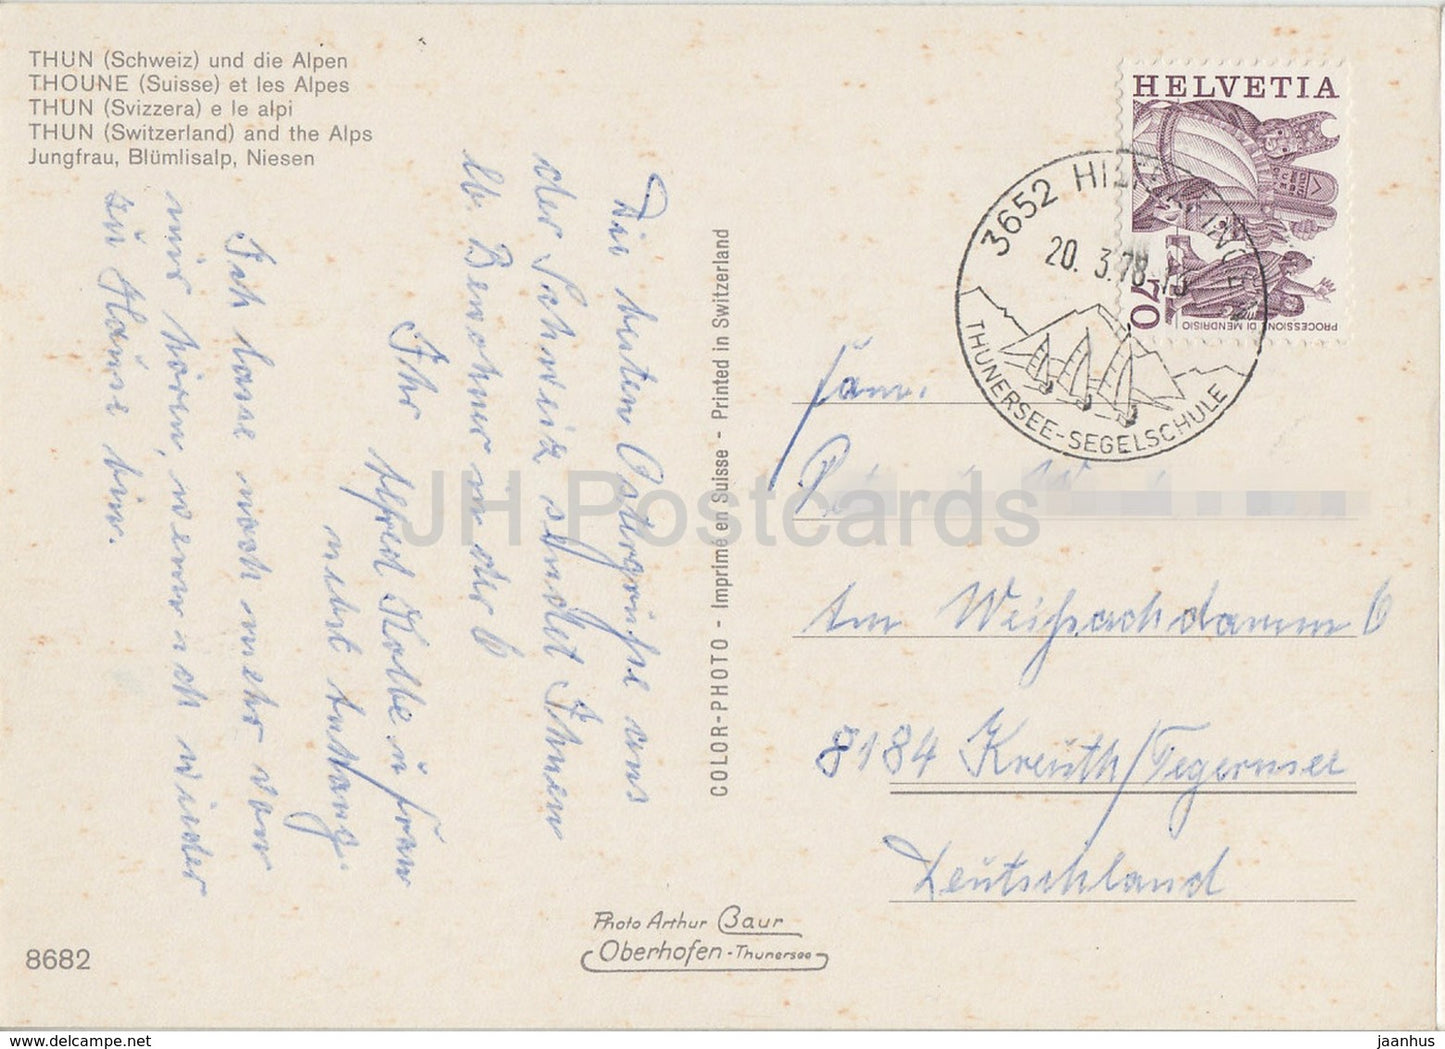 THUN (Schweiz) und die Alpen
THOUNE (Suisse) et les Alpes
THUN (Svizzera) e le alpi
THUN (Switzerland) and the Alps
Jungfrau, Blümlisalp, Niesen
Die besten Ostergrüße aus
der Schweiz sendet Ihnen
lb. Bewohner in der 6
Ihr
Alfred Kolbe u. Frau
nebst Anhang.
Ich lasse noch mehr von
mir hören, wenn ich wieder
zu Hause bin.
COLOR-PHOTO - Imprimé en Suisse - Printed in Switzerland
HELVETIA
70
PROCESSIONI DI MENDRISIO
3652 HILTERFINGEN
20. 3.78
THUNERSEE-SEGELSCHULE
Fam.
Am Weißachdamm 6
8184 Kreuth/Tegernsee
Deutschland
Photo Arthur Baur
Oberhofen-Thunersee
8682
JH Postcards
www.delcampe.net
jaanhus